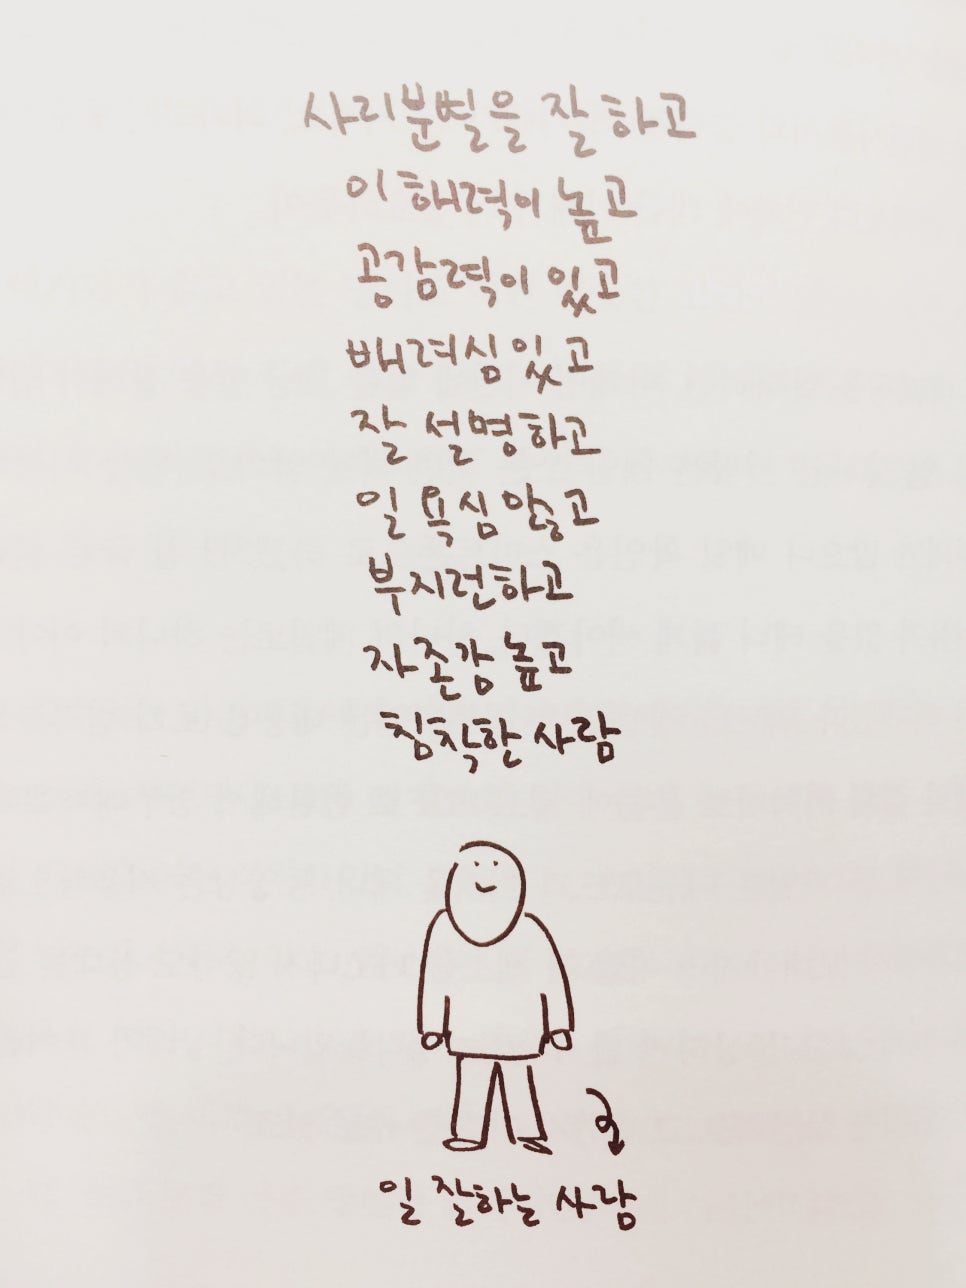 사리분별을 잘하고
이해력이 높고
공감력이 있고
배려심있고
잘 설명하고
일 욕심 많고
부지런하고
자존감 높고
침착한 사람
일 잘하는 사람